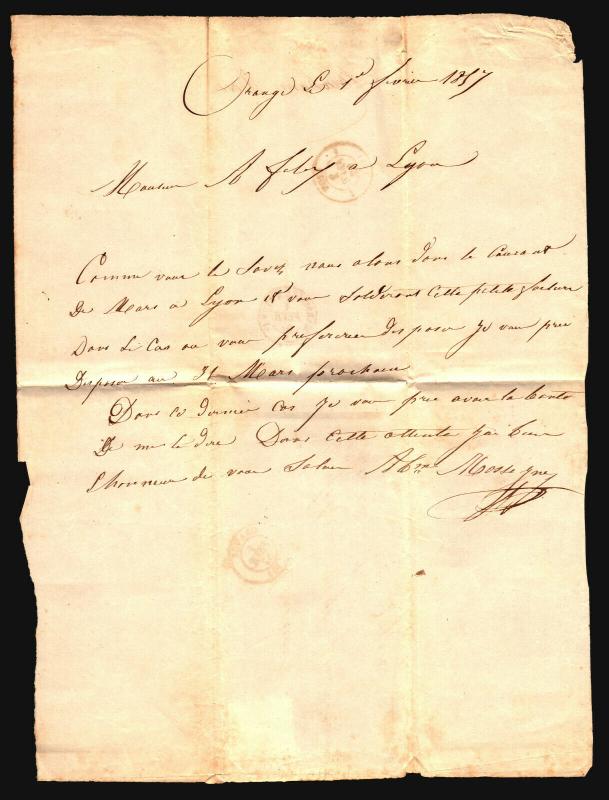 Orange Le 1er février 1857
Monsieur A à Lyon
Comme vous le Savez nous alons dans le Courant
De Mars a Lyon et vous Solderont cette petite facture
Dans Le Cas ou vous prefererer disposer Je vous prie
Disposer au 31 Mars prochain
Dans ce dernier cas Je vous prie avoir la bonté
De me le dire Dans cette attente J'ai bien
L'honneur de vous Saluer Abm Mossé